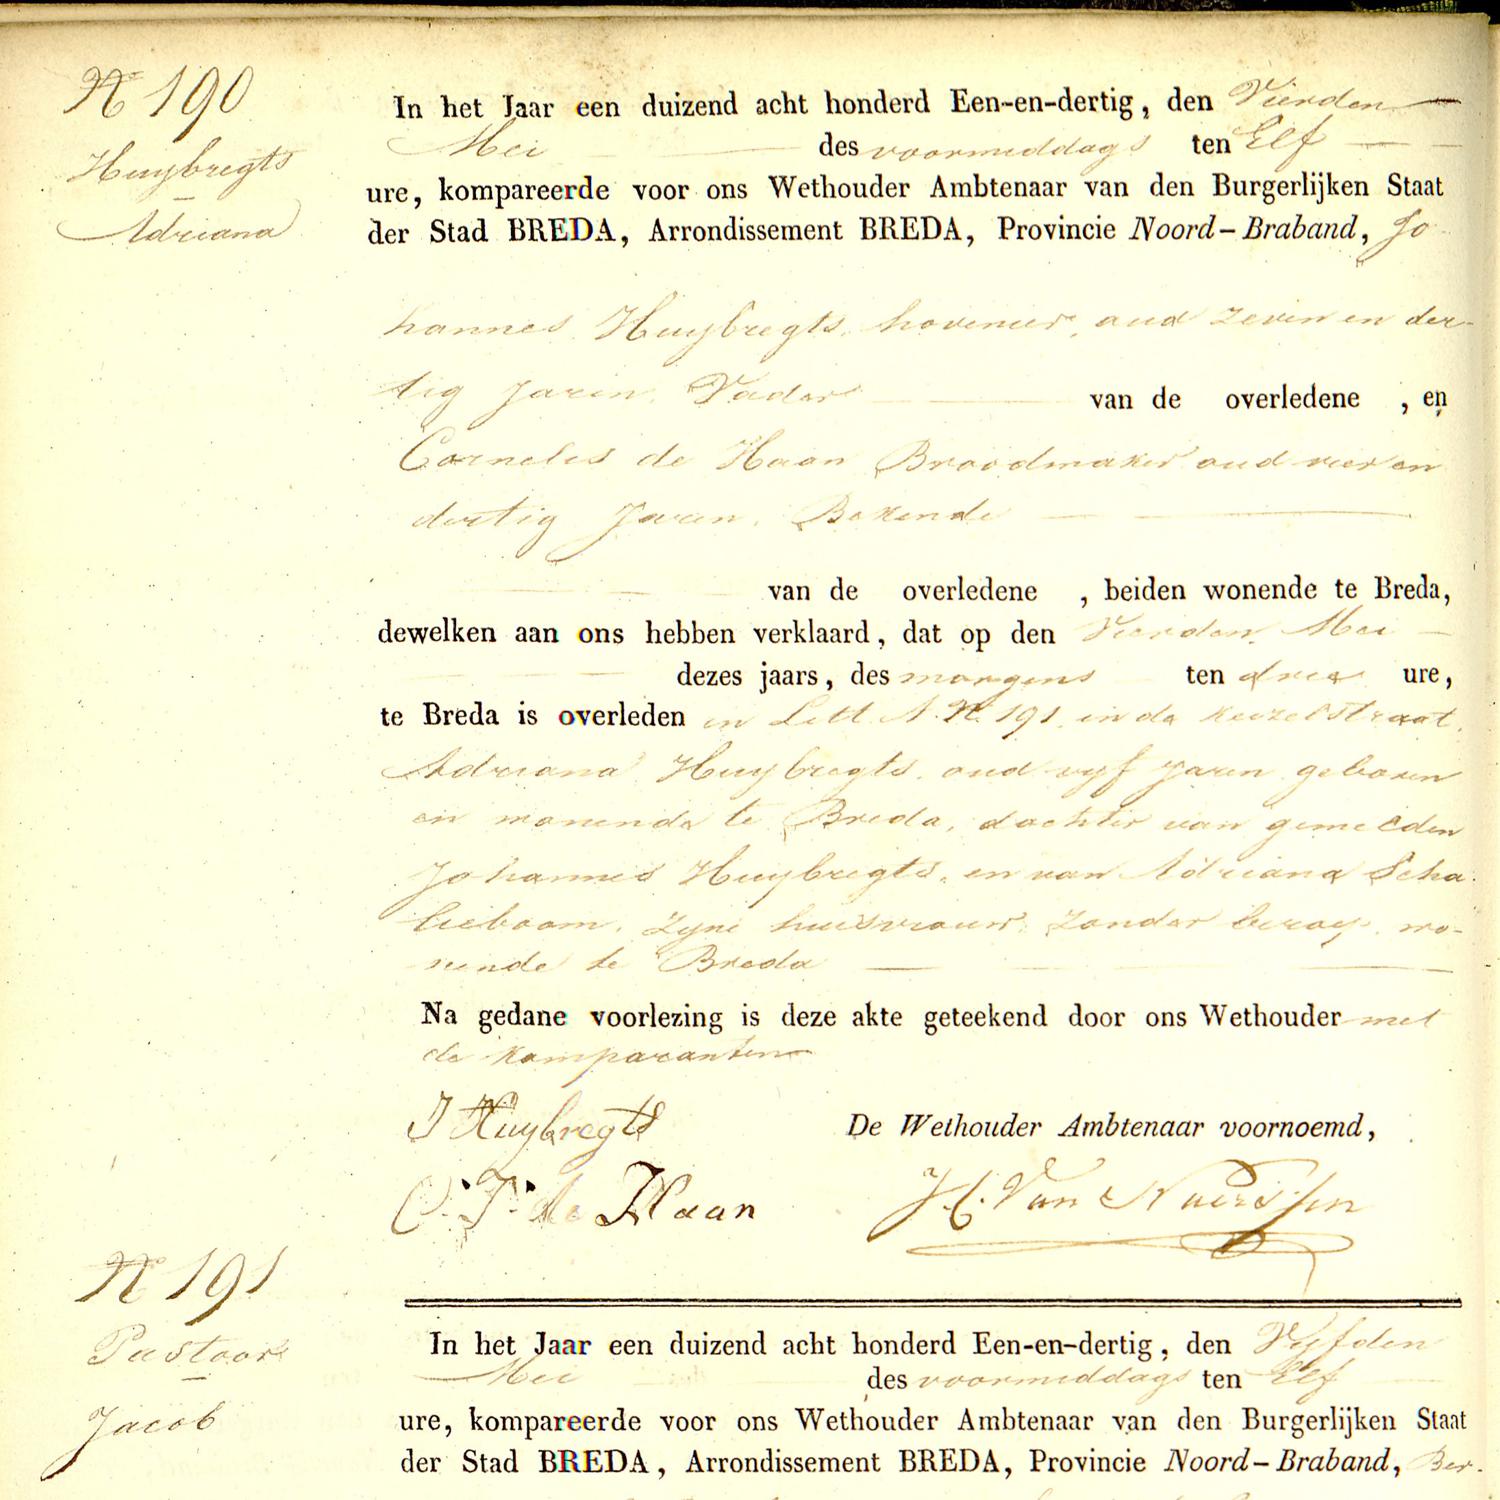 N 190
Huybregts
Adriana
In het Jaar een duizend acht honderd Een-en-dertig, den Vierden
Mei des voormiddags ten Elf
ure, kompareerde voor ons Wethouder Ambtenaar van den Burgerlijken Staat
der Stad BREDA, Arrondissement BREDA, Provincie Noord-Braband, Jo
hannes Huybregts, hovenier, oud zeven en der-
tig Jaren, Vader van de overledene , en
Cornelis de Haan Broodmaker oud vier en
dertig Jaren, Bekende
van de overledene , beiden wonende te Breda,
dewelken aan ons hebben verklaard, dat op den Vierden Mei
dezes jaars, des morgens ten drie ure,
te Breda is overleden in Litt. A. N. 191, in de Keizelstraat,
Adriana Huybregts, oud vyf Jaren geboren
en wonende te Breda, dochter van gemelden
Johannes Huybregts, en van Adriana Scha-
lieboom, zyne huisvrouw, zonder beroep, wo-
nende te Breda
Na gedane voorlezing is deze akte geteekend door ons Wethouder met
de komparanten
J Huybregts
De Wethouder Ambtenaar voornoemd,
C. J. de Haan
N 191
Pastoors
Jacob
In het Jaar een duizend acht honderd Een-en-dertig, den Vyfden
Mei des voormiddags ten Elf
ure, kompareerde voor ons Wethouder Ambtenaar van den Burgerlijken Staat
der Stad BREDA, Arrondissement BREDA, Provincie Noord-Braband, Ber-